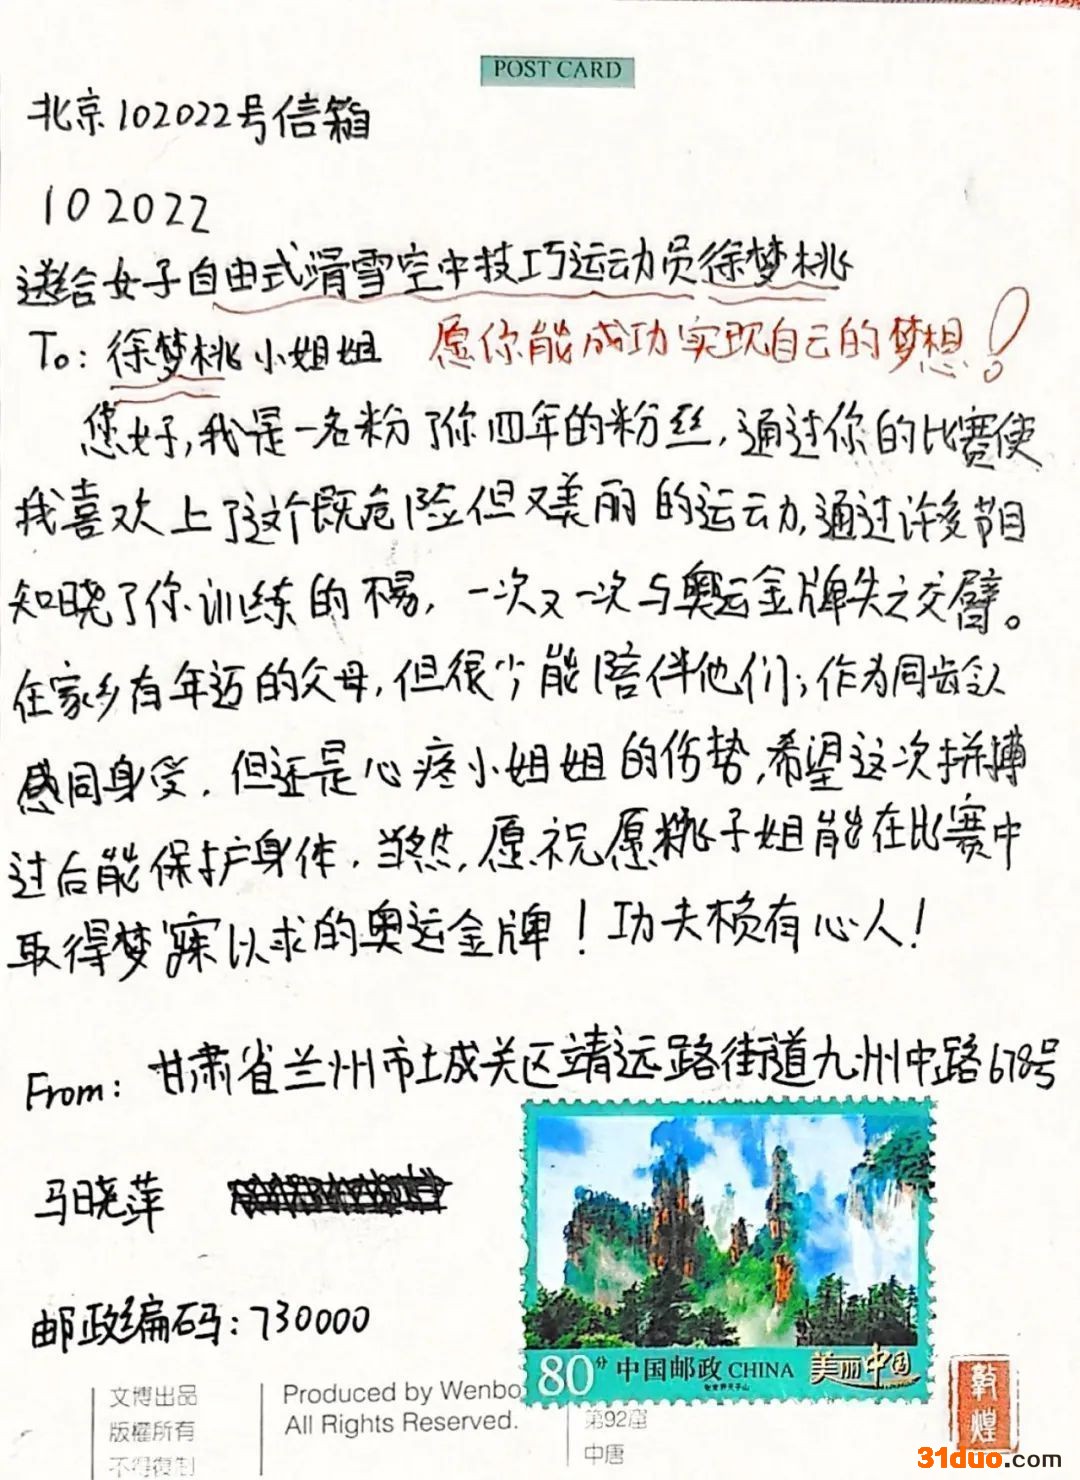 POST CARD
北京102022号信箱
102022
送给女子自由式滑雪空中技巧运动员徐梦桃
To：徐梦桃小姐姐 愿你能成功实现自己的梦想！
您好，我是一名粉了你四年的粉丝，通过你的比赛使
我喜欢上了这个既危险但又美丽的运动，通过许多节目
知晓了你训练的不易，一次又一次与奥运金牌失之交臂。
在家乡有年迈的父母，但很少能陪伴他们；作为同龄人
感同身受，但还是心疼小姐姐的伤势，希望这次拼搏
过后能保护身体，当然，愿祝愿桃子姐能在比赛中
取得梦寐以求的奥运金牌！功夫不负有心人！
From：甘肃省兰州市城关区靖远路街道九州中路678号
马晓萍
邮政编码：730000
80分 中国邮政 CHINA 美丽中国
文博出品
版權所有
不得復制
Produced by Wenbo
All Rights Reserved.
第92窟
中唐
敦煌
31duo.com